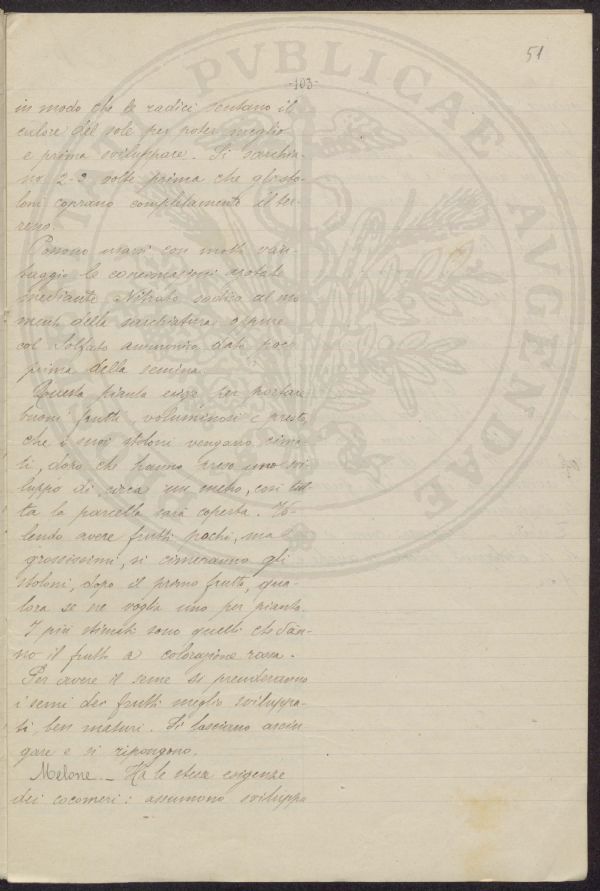 51
-103-
in modo che le radici sentano il
calore del sole per poter meglio
e prima sviluppare. Si sarchia-
no 2-3 volte prima che gli sto-
loni coprano completamente il ter-
reno.
Possono usarsi con molto van-
taggio le concimazioni azotate
mediante Nitrato sodico al mo-
mento della sarchiatura oppure
col Solfato ammonico dato poco
prima della semina.
Questa pianta esige per portare
buoni frutti voluminosi e presto,
che i suoi stoloni vengano cima-
ti, dopo che hanno preso uno svi-
luppo di circa un metro, così tut-
ta la parcella sarà coperta. Vo-
lendo avere frutti pochi, ma
grossissimi, si cimeranno gli
stoloni, dopo il primo frutto, qua-
lora se ne voglia uno per pianta.
I più stimati sono quelli che dan-
no il frutto a colorazione rossa.
Per avere il seme si prenderanno
i semi dei frutti meglio sviluppa-
ti, ben maturi. Si lasciano asciu-
gare e si ripongono.
Melone. - Ha le stesse esigenze
dei cocomeri: assumono sviluppo
PVBLICAE AVGENDAE